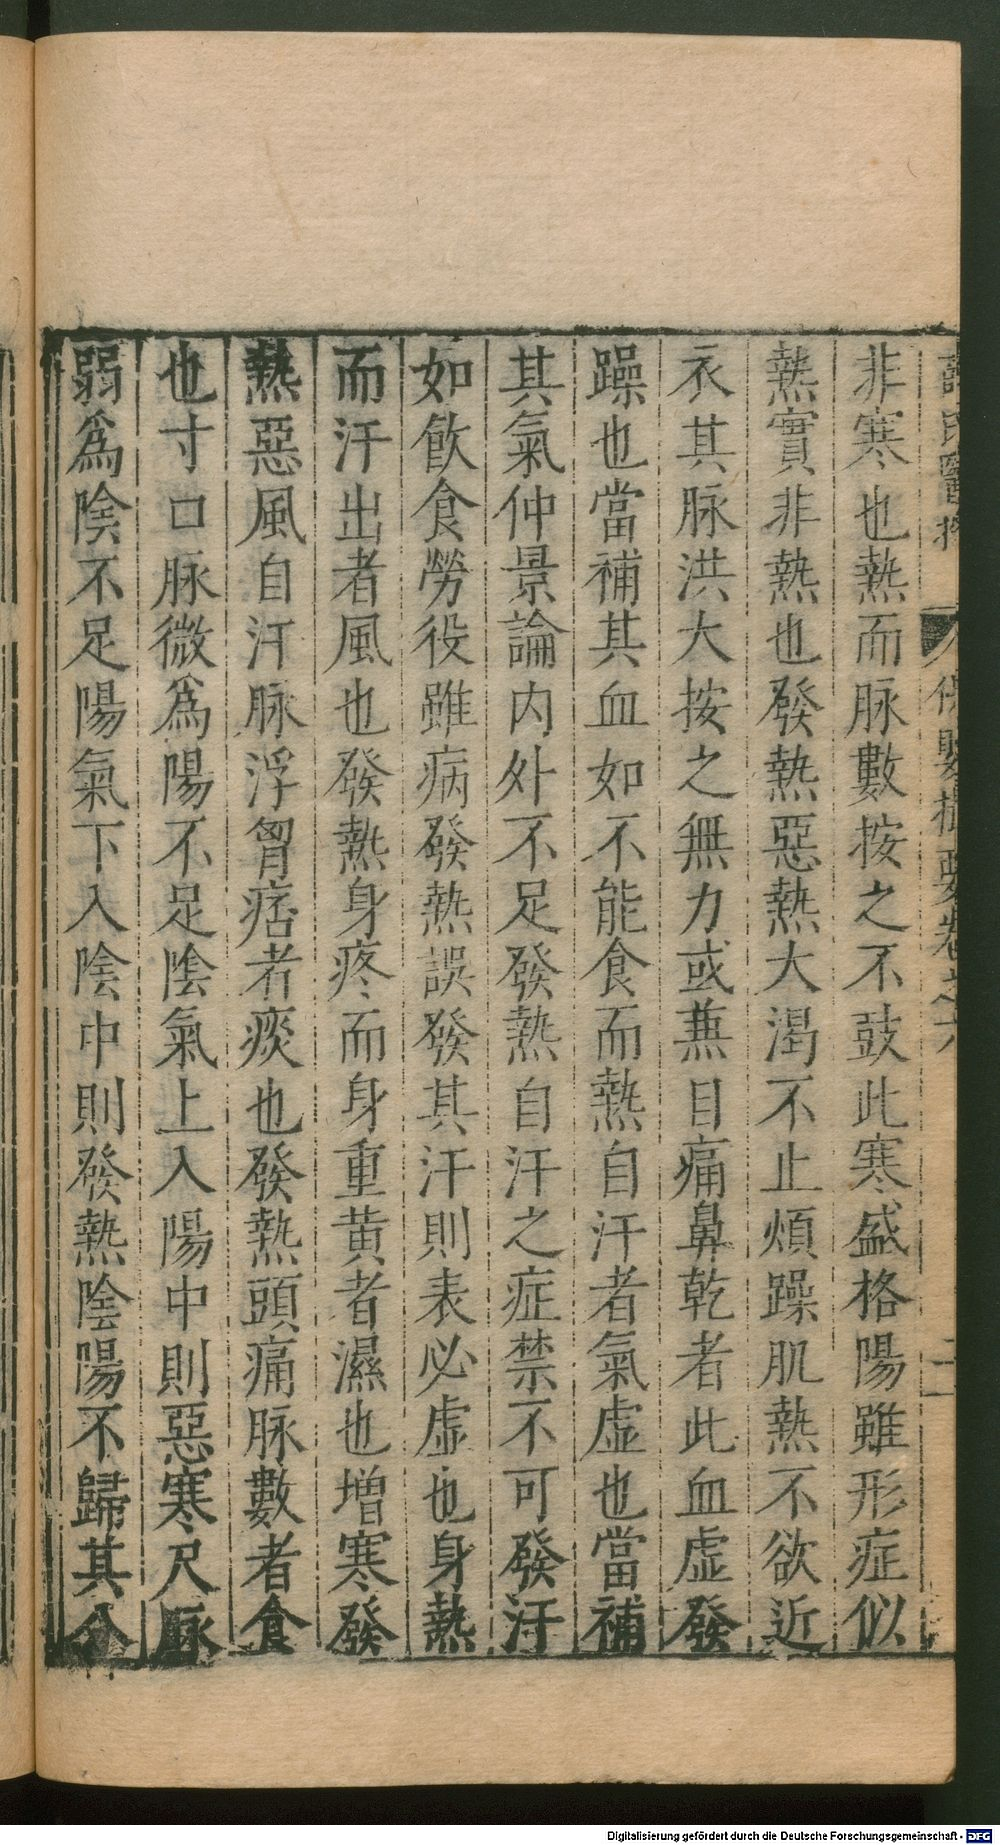 非寒也熱而脉數按之不鼓此寒盛格陽雖形症似
熱實非熱也發熱惡熱大渴不止煩躁肌熱不欲近
衣其脉洪大按之無力或蕪目痛鼻乾者此血虛發
躁也當補其血如不能食而熱自汗者氣虛也當補
其氣仲景論内外不足發熱自汗之症禁不可發汗
如飲食勞役雖病發熱誤發其汗則表必虛也身熱
而汗出者風也發熱身疼而身重黄者濕也增寒發
熱惡風自汗脉浮胷痞者痰也發熱頭痛脉數者食
也寸口脉微爲陽不足陰氣上入陽中則惡寒尺脉
弱爲陰不足陽氣下入陰中則發熱陰陽不歸其分
氏醫按 保嬰撮要卷之六
Digitalisierung gefördert durch die Deutsche Forschungsgemeinschaft - DFG